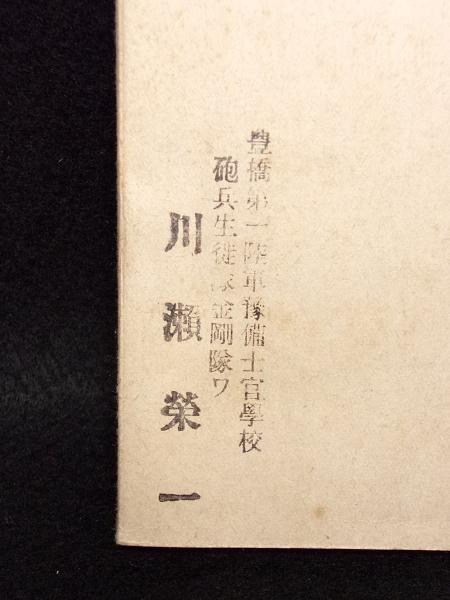 豊橋第一陸軍豫備士官學校
砲兵生徒隊金剛隊ワ
川瀬榮一